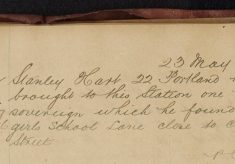 23 May
Stanley Hart 22 Portland
brought to this Station one
sovereign which he found
girls School Lane close to
Street